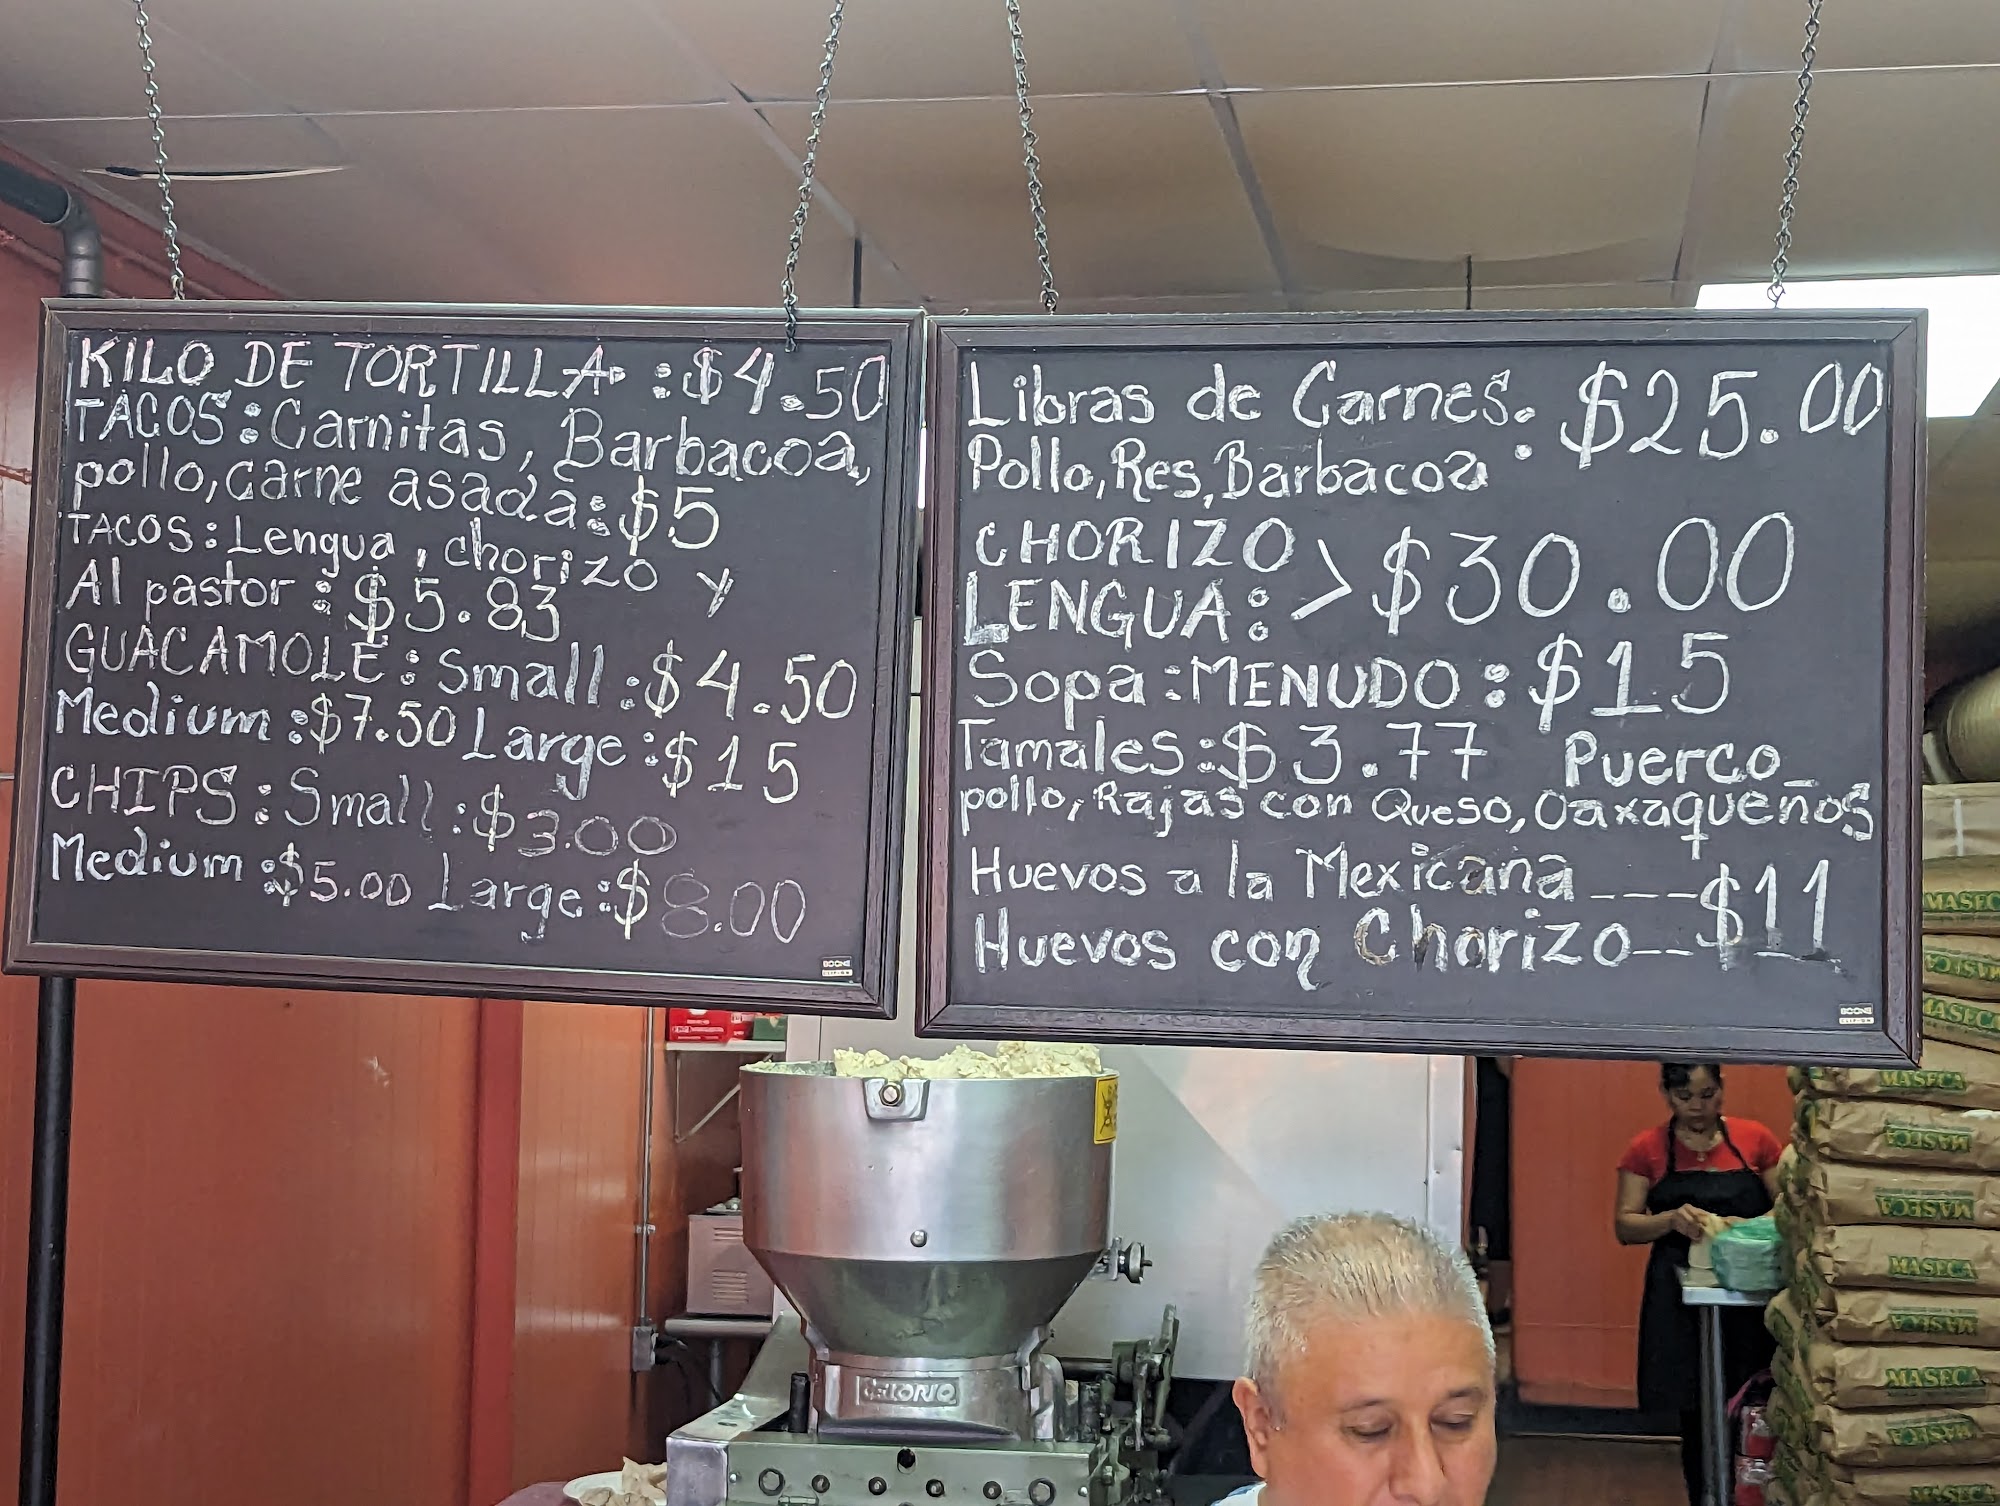 KILO DE TORTILLA : $4.50
TACOS: Carnitas, Barbacoa,
pollo, carne asada: $5
TACOS: Lengua, chorizo y
Al pastor : $5.83
GUACAMOLE : Small : $4.50
Medium : $7.50 Large : $15
CHIPS : Small : $3.00
Medium : $5.00 Large : $8.00
BOONE
Libras de Carnes: $25.00
Pollo, Res, Barbacoa :
CHORIZO
LENGUA: > $30.00
Sopa : MENUDO : $15
Tamales : $3.77 Puerco_
pollo, Rajas con Queso, Oaxaqueños
Huevos a la Mexicana ----$11
Huevos con Chorizo--$11
BOONE
CELORIO
MASECA
MASECA
MASECA
MASECA
MASECA
MASECA
MASECA
MASECA
MASECA
MASECA